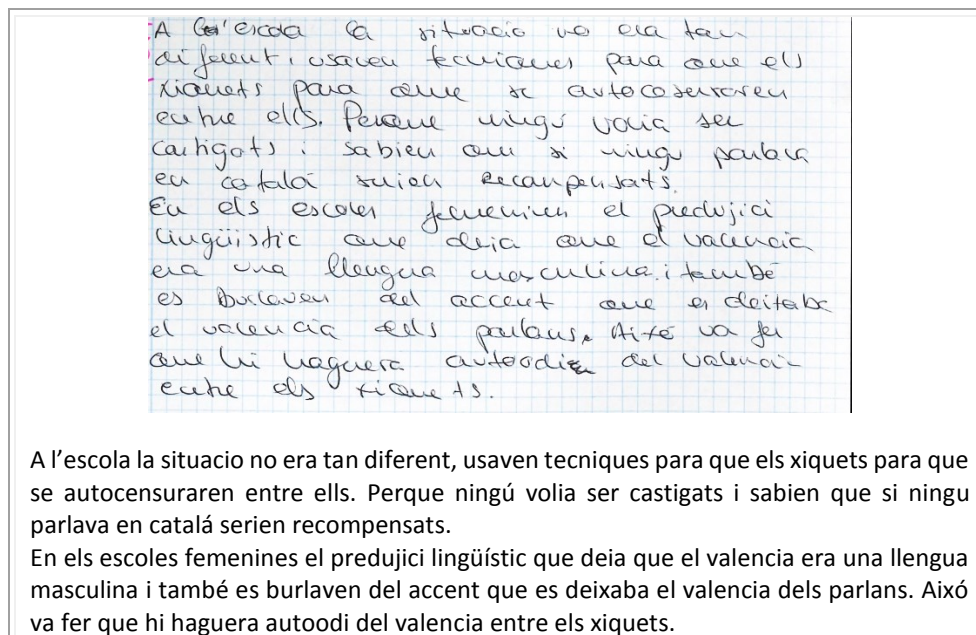 A l'escola la situacio no era tan
diferent, usaven tecniques para que els
xiquets para que se autocosuraren
entre ells. Perque ningú volia ser
castigats i sabien que si ningu parlava
en catalá serien recanpensats.
En els escoles femenines el predujici
lingüistic que deia que el valencia
era una llengua masculina i també
es burlaven del accent que es deitaba
el valencia dels parlans. Aixó va fer
que hi haguera autoodi del valencia
entre els xiquets.
A l'escola la situacio no era tan diferent, usaven tecniques para que els xiquets para que
se autocensuraren entre ells. Perque ningú volia ser castigats i sabien que si ningu
parlava en catalá serien recompensats.
En els escoles femenines el predujici lingüístic que deia que el valencia era una llengua
masculina i també es burlaven del accent que es deixaba el valencia dels parlans. Aixó
va fer que hi haguera autoodi del valencia entre els xiquets.